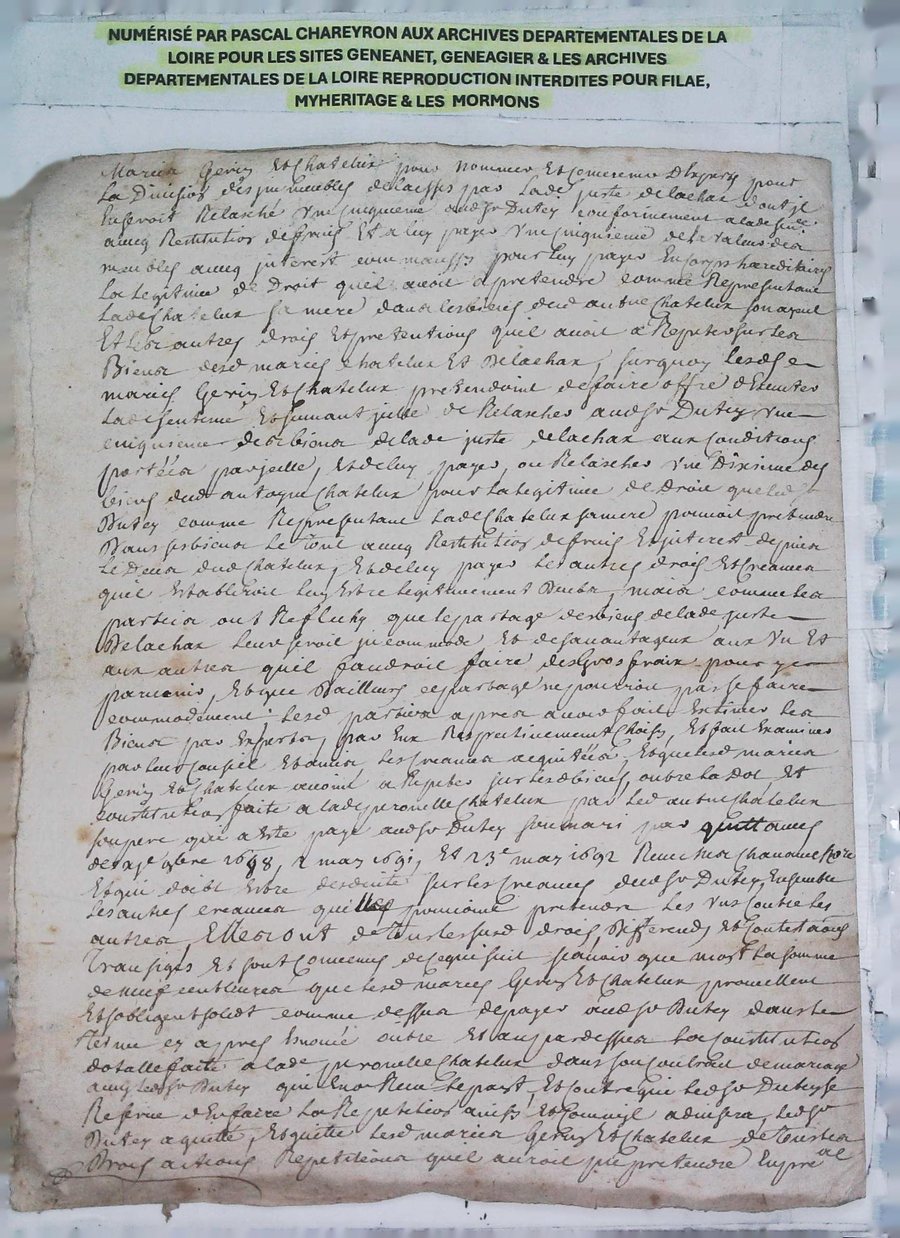 NUMÉRISÉ PAR PASCAL CHAREYRON AUX ARCHIVES DEPARTEMENTALES DE LA
LOIRE POUR LES SITES GENEANET, GENEAGIER & LES ARCHIVES
DEPARTEMENTALES DE LA LOIRE REPRODUCTION INTERDITES POUR FILAE,
MYHERITAGE & LES MORMONS
Mariés Gerin Et Chatelux pour nommer Et convenir dExperts pour
La Division des immeubles delaissés par Lade juste delachax dont il
Enseroit Relasché Vne cinquieme audsr Dutey conformement alade
aucq Restitution de fruis Et a luy payer Vne cinquieme de La Valeur des
meubles aucq interest comm'aussy pour luy payer En corps hereditaires
La Legitime de Droit quil avoit a pretendre comme Representant
Lade Chatelux sa mere dans les biens dud Chatelux son ayeul
Et Les autres droits Et pretentions quil avoit a Repeter sur Les
Biens desd mariés Chatelux Et Delachax, surquoy Lesds
mariés Gerin Et Chatelux pretendoint de faire offre dExecuter
Lade sentence Et suivant icelle de Relascher audsr Dutey Vne
cinquieme des biens delade juste delachax aux conditions
portées par jcelle, Et de luy payer, ou Relascher Vne Dixime des
biens dud antoyne Chatelux pour La Legitime de Droit que Led sr
Dutey comme Representant Lade Chatelux sa mere pouvoit pretendre
Dans ses biens Le Tout aucq Restitution de fruis Et interest depuis
Le Deces dud Chatelux, Et de luy payer Les autres droits Et Creances
quil Establiroit luy Estre legitimement Deubs, mais comme Les
parties ont Reflechy que le partage des biens delade juste
Delachax Leur seroit jncommode Et desavantageux aux Vn Et
aux autres quil faudroit faire des Gros fraix pour y
parvenir, Et que Dailleurs ce partage ne pourroit pas se faire
commodement; Lesd parties apres avoir fait Estimer Les
Biens par Experts, par Eux Respectivement Choisis, Et fait Examiner
par leur Conseil Les Creances acquittées, Et que Lesd mariés
Gerin Et Chatelux avoint a Repeter sur Lesd biens, outre La dot Et
constitution faite a lade peronelle Chatelux par Led Chatelux
son pere qui a Esté payé audsr Dutey son mari par quittances
9bre 1688, 2 may 1691, Et 23e may 1692 Receu
Et qui doibt Estre desduite sur Les Creances dudsr Dutey Ensemble
Les autres creances quelles pouvoint pretendre Les Vns Contre Les
autres, Elles ont de Tous Lesusd droits Differends Et Contestations
Transigés Et sont convenus de ce qui suit sçavoir que moyt La somme
de neuf cent livres que Lesd mariés Gerin Et Chatelux promettent
Et sobligent solidt comme dessus de payer audsr Dutey dans Le
Terme cy apres Enoncé outre Et au par dessus La constitution
dotalle faite a lade peronelle Chatelux dans son Contrat de mariage
aucq Ledsr Dutey qui En a Receu Et contre qui Ledsr Dutey se
Reserve dEnfaire La Repetition ainsy Et Comm'jl advisera, Ledsr
Dutey a quitté, Et quitte Lesd mariés Gerin Et Chatelux de Tous Les
Droits actions Repetitions quil auroit peu pretendre